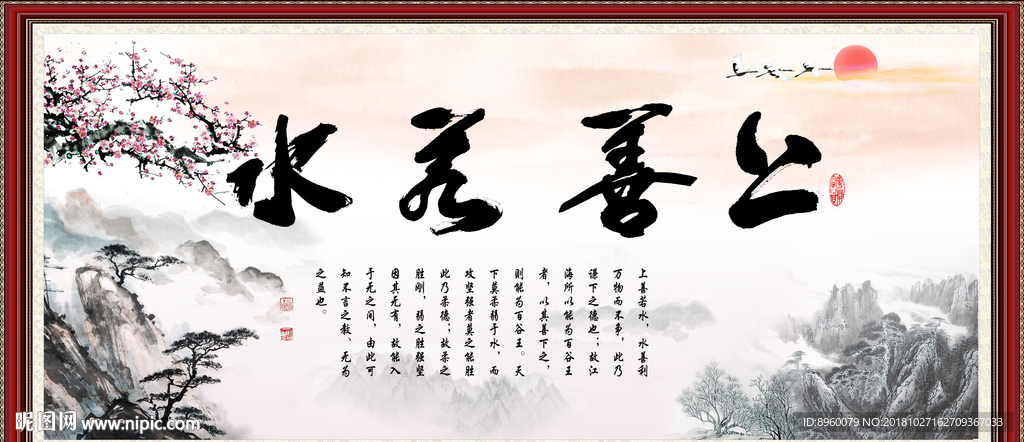 上善若水
上善若水，水善利
万物而不争，此乃
谦下之德也；故江
海所以能为百谷王
者，以其善下之，
则能为百谷王。天
下莫柔弱于水，而
攻坚强者莫之能胜
此乃柔德；故柔之
胜刚，弱之胜强坚
因其无有，故能入
于无之间，由此可
知不言之教、无为
之益也。
昵图网 www.nipic.com
ID:8960079 NO:20181027162709367033